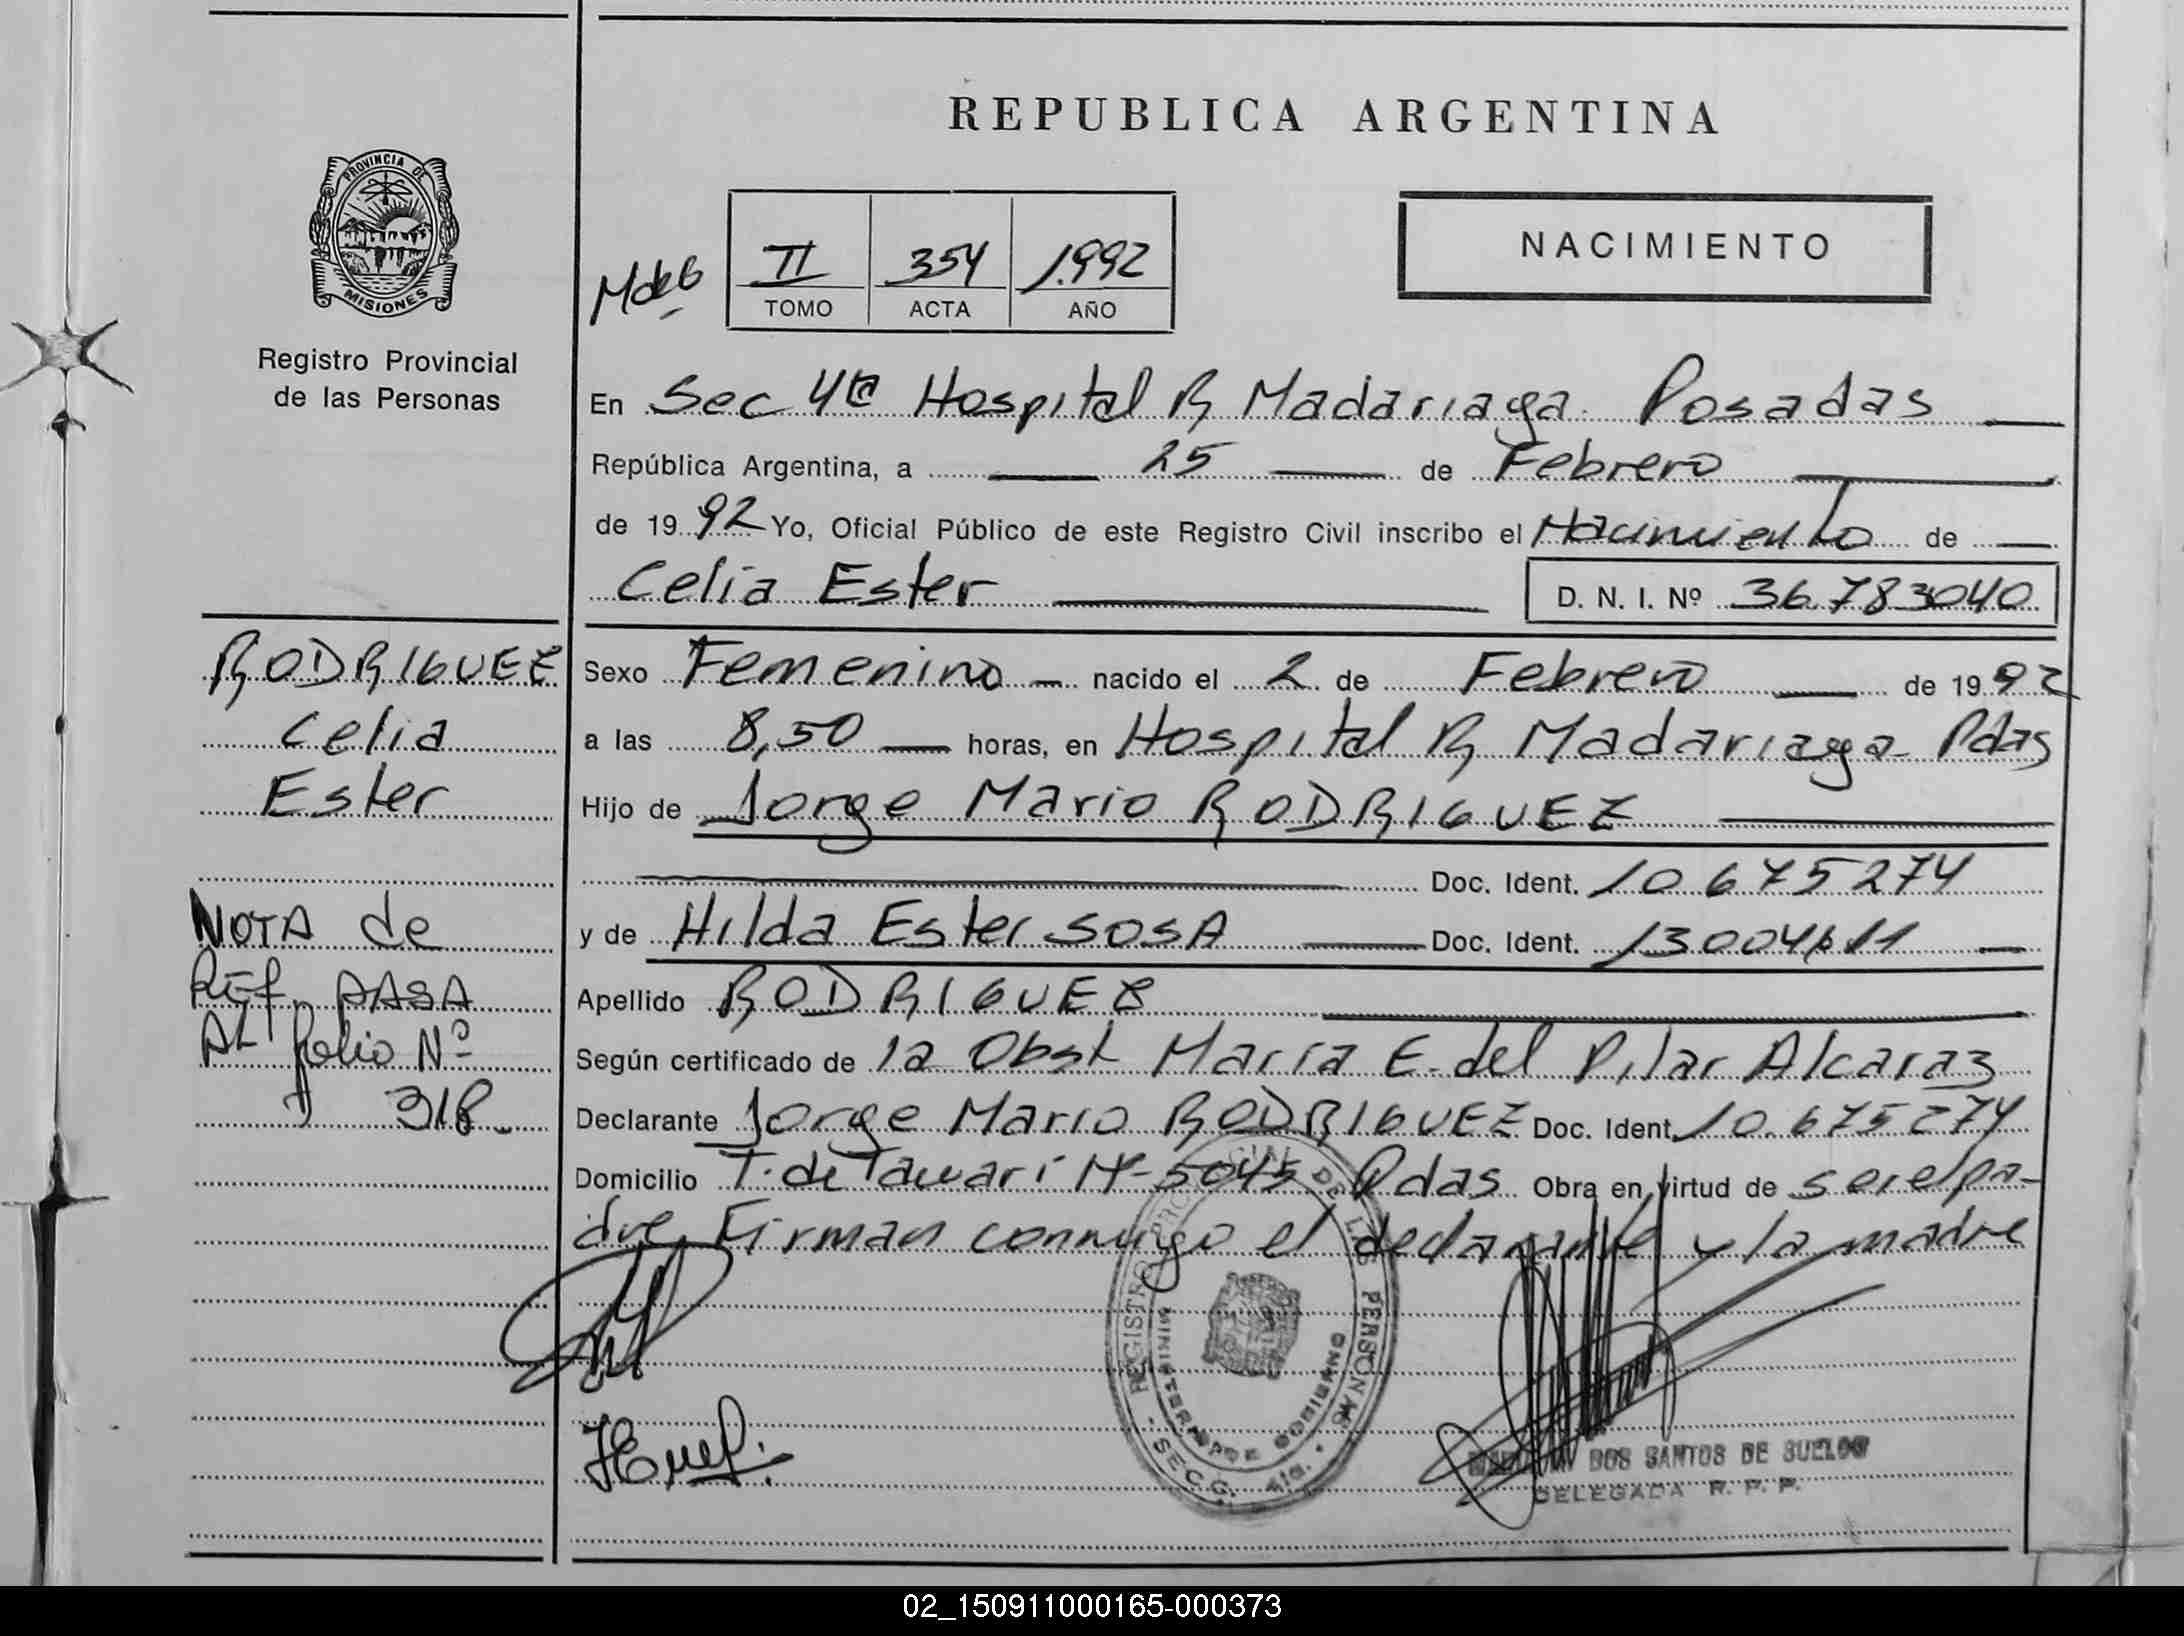 REPUBLICA ARGENTINA
PROVINCIA DE
MISIONES
Registro Provincial
de las Personas
II 354 1.992
TOMO ACTA AÑO
NACIMIENTO
En Sec 4ta Hospital R Madariaga Posadas
República Argentina, a 25 de Febrero
de 1992 Yo, Oficial Público de este Registro Civil inscribo el Nacimiento de
Celia Ester D. N. I. Nº 36.783040
RODRIGUEZ
Celia
Ester
NOTA de
Ref. PASA
AL folio Nº
318.
Sexo Femenino nacido el 2 de Febrero de 1992
a las 8,50 horas, en Hospital R Madariaga Pdas
Hijo de Jorge Mario RODRIGUEZ
Doc. Ident. 10.675274
y de Hilda Ester SOSA Doc. Ident.
Apellido RODRIGUEZ
Según certificado de la Obst María E. del Pilar Alcaraz
Declarante Jorge Mario RODRIGUEZ Doc. Ident. 10.675274
Domicilio T. de Nº 5045 Pdas Obra en virtud de ser el pa-
dre, Firman conmigo el declarante y la madre
REGISTRO PROVINCIAL DE LAS PERSONAS
DOS SANTOS DE
DELEGADA R. P. P.
02_150911000165-000373